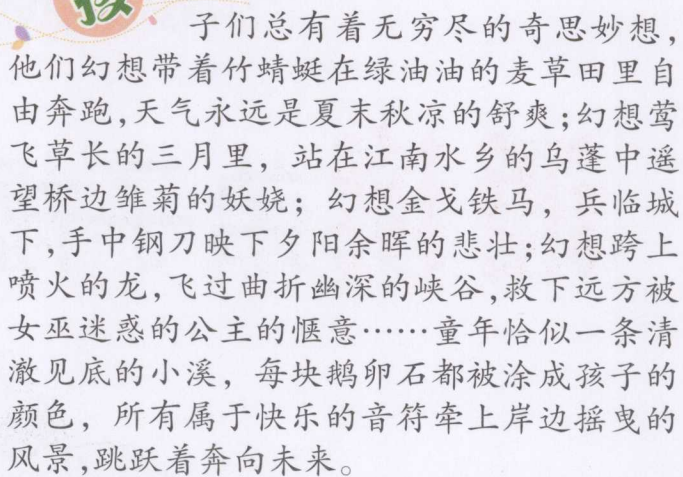 孩
子们总有着无穷尽的奇思妙想，
他们幻想带着竹蜻蜓在绿油油的麦草田里自
由奔跑，天气永远是夏末秋凉的舒爽；幻想莺
飞草长的三月里，站在江南水乡的乌蓬中遥
望桥边雏菊的妖娆；幻想金戈铁马，兵临城
下，手中钢刀映下夕阳余晖的悲壮；幻想跨上
喷火的龙，飞过曲折幽深的峡谷，救下远方被
女巫迷惑的公主的惬意……童年恰似一条清
澈见底的小溪，每块鹅卵石都被涂成孩子的
颜色，所有属于快乐的音符牵上岸边摇曳的
风景，跳跃着奔向未来。